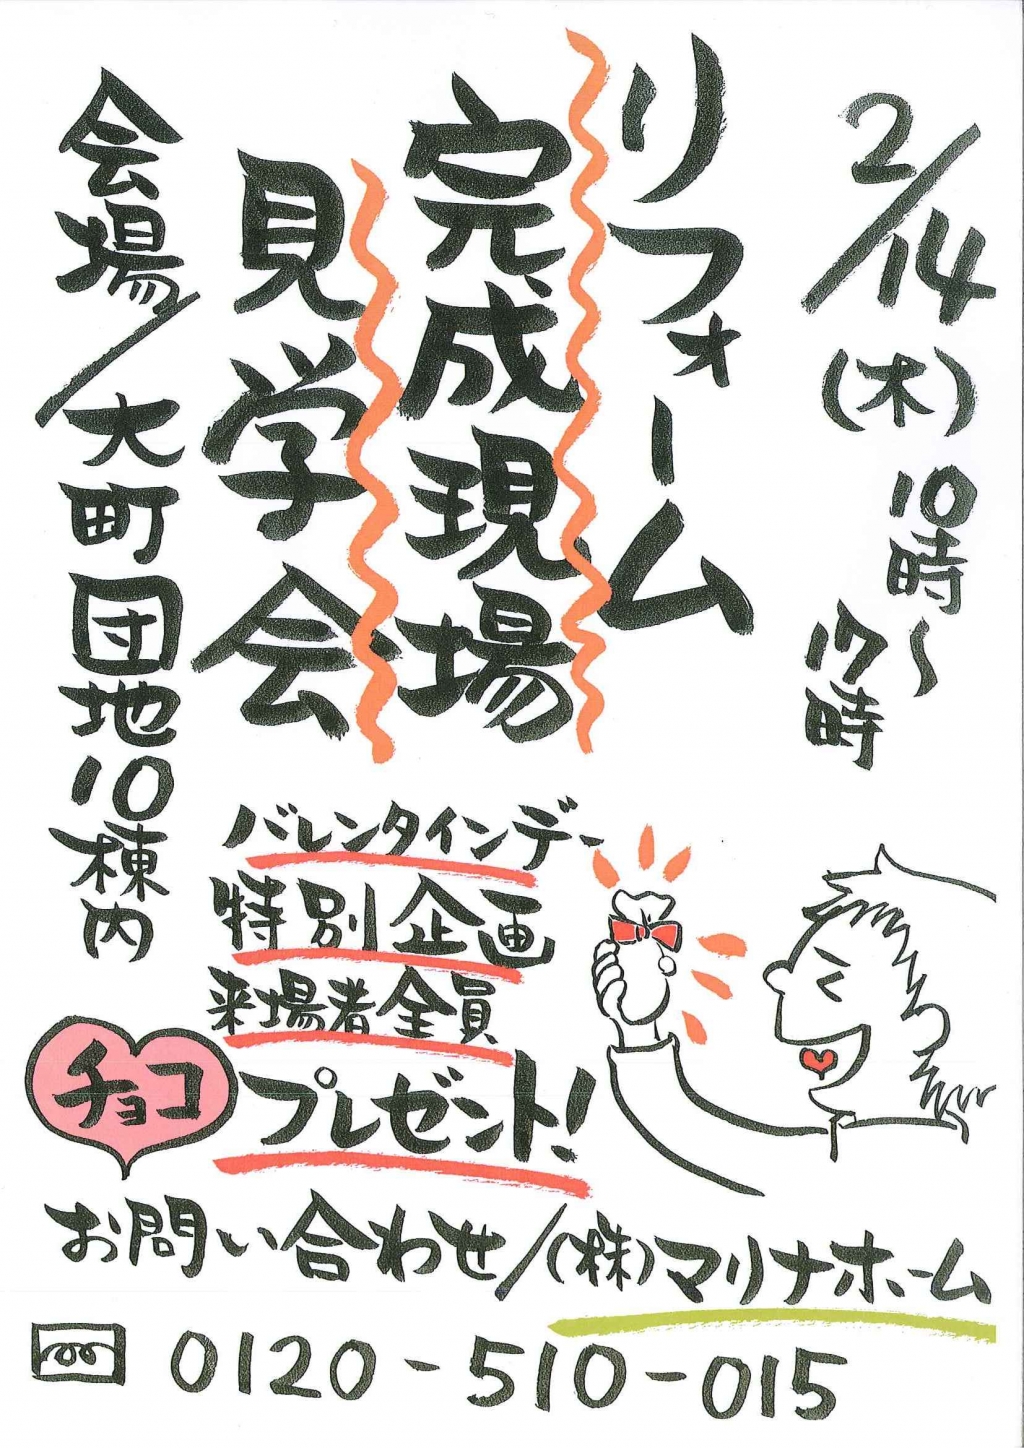 2/14(木)10時～17時
リフォーム
完成現場
見学会
会場/大町団地10棟内
バレンタインデー
特別企画
来場者全員
チョコプレゼント!
お問い合わせ/(株)マリナホーム
0120-510-015